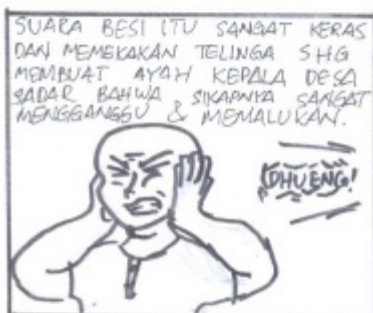 SUARA BESI ITU SANGAT KERAS
DAN MEMEKAKAN TELINGA SHG
MEMBUAT AYAH KEPALA DESA
SADAR BAHWA SIKAPNYA SANGAT
MENGGANGGU & MEMALUKAN.
DHUENG!